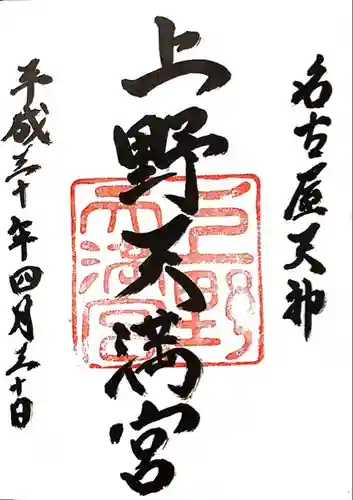 名古屋天神
上野天満宮
平成三十年四月三十日
上野天満宮